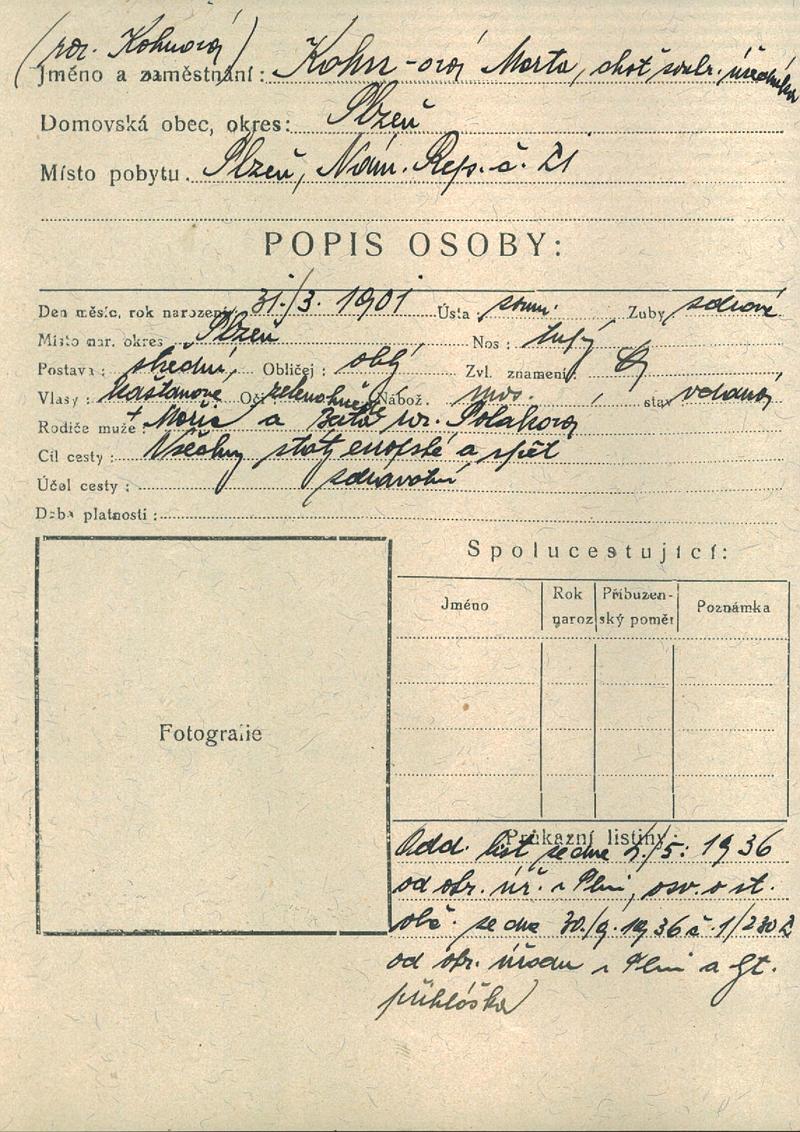 (roz. Kohnová)
Jméno a zaměstnání: Kohn-ová Marta, choť soukr. úředníka
Domovská obec, okres: Plzeň
Místo pobytu. Plzeň, Nám. Rep. č. 21
POPIS OSOBY:
Den měsíc, rok narození 31./3. 1901 Ústa soum. Zuby zdravé
Místo nar. okres Plzeň Nos: tupý
Postava: střední, Obličej: oblý Zvl. znamení:
Vlasy: kaštanové Oči zelenohnědé Nábož. mos. stav vdaná
Rodiče muže: + Moric a Berta roz. Poláková
Cíl cesty: Všechny státy evropské a zpět
Účel cesty: zdravotní
Doba platnosti:
Spolucestující:
Jméno Rok naroz Příbuzenský poměr Poznámka
Fotografie
Průkazní listiny:
Odd. list ze dne 2./5. 1936
od okr. úř. v Plzni, osv. o st.
obč. ze dne 30./9. 1936 č. 1/2302
od okr. úřadu v Plzni a
přihláška